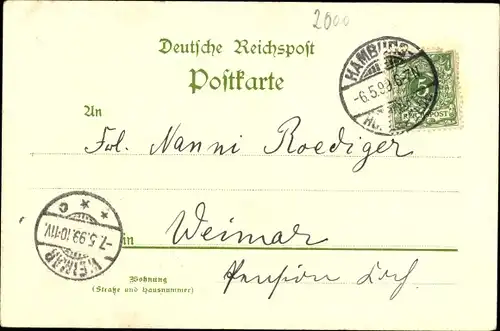 2000
Deutsche Reichspost
Postkarte
HAMBURG
-6.5.99.6-7N.
5
REICHSPOST
An
Frl. Nanni Roediger
* * C
-7.5.99.10-11V.
WEIMAR
in Weimar
Wohnung
(Straße und Hausnummer)
Pension